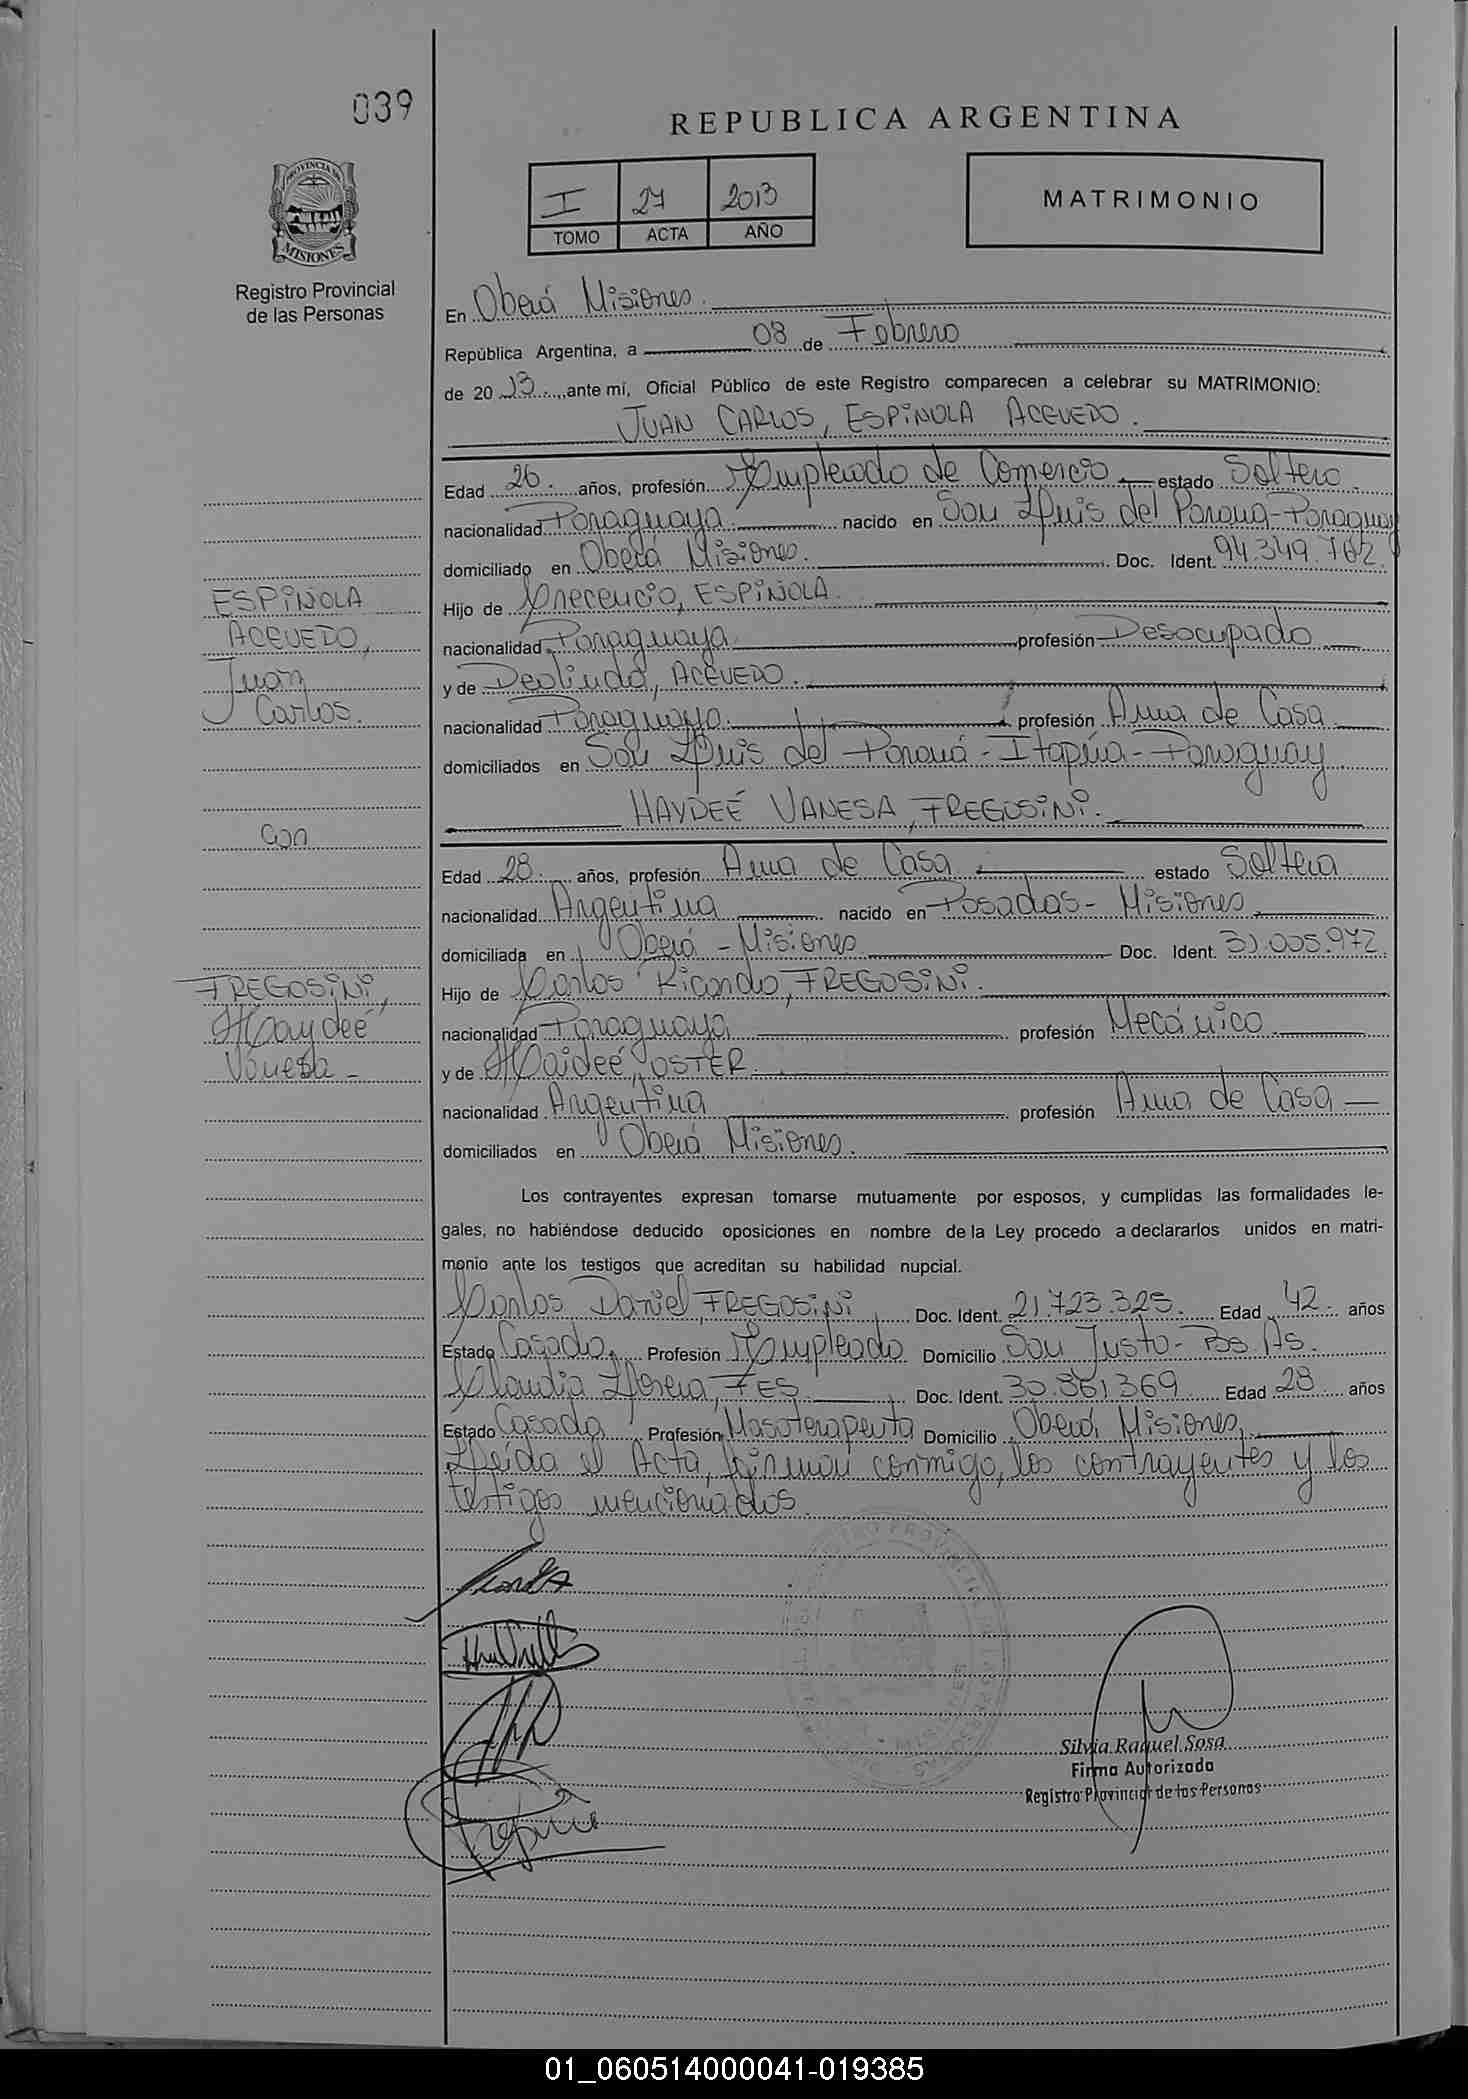 039
REPUBLICA ARGENTINA
PROVINCIA DE
MISIONES
Registro Provincial
de las Personas
I 27 2013
TOMO ACTA AÑO
MATRIMONIO
En Oberá Misiones.
República Argentina, a 08 de Febrero
de 2013. ante mí, Oficial Público de este Registro comparecen a celebrar su MATRIMONIO:
JUAN CARLOS, ESPINOLA ACEVEDO.
Edad 26. años, profesión Empleado de Comercio estado Soltero.
nacionalidad Paraguaya. nacido en San Luis del Paraná-Paraguay
domiciliado en Oberá Misiones. Doc. Ident. 94.349.762.
Hijo de Crecencio, ESPINOLA.
nacionalidad Paraguaya profesión Desocupado
y de Deolinda, ACEVEDO.
nacionalidad Paraguaya. profesión Ama de Casa
domiciliados en San Luis del Paraná-Itapúa-Paraguay
ESPINOLA
ACEVEDO,
Juan
Carlos.
HAYDEÉ VANESA, FREGOSINI.
con
Edad 28. años, profesión Ama de Casa estado Soltera
nacionalidad Argentina nacido en Posadas- Misiones
domiciliada en Oberá - Misiones Doc. Ident. 31.005.972.
Hijo de Carlos Ricardo, FREGOSINI.
nacionalidad Paraguaya profesión Mecánico.
y de Haideé, OSTER.
nacionalidad Argentina profesión Ama de Casa
domiciliados en Oberá Misiones.
FREGOSINI,
Haydeé
Vanesa -
Los contrayentes expresan tomarse mutuamente por esposos, y cumplidas las formalidades le-
gales, no habiéndose deducido oposiciones en nombre de la Ley procedo a declararlos unidos en matri-
monio ante los testigos que acreditan su habilidad nupcial.
Carlos Daniel, FREGOSINI Doc. Ident. 21.723.325. Edad 42. años
Estado Casado. Profesión Empleado Domicilio San Justo- Bs As.
Claudia Lorena, FES Doc. Ident. 30.361.369 Edad 28 años
Estado Casada Profesión Masoterapeuta Domicilio Oberá, Misiones.
Leída el Acta, firman conmigo, los contrayentes y los
testigos mencionados.
Silvia Raquel Sosa
Firma Autorizada
Registro Provincial de las Personas
01_060514000041-019385